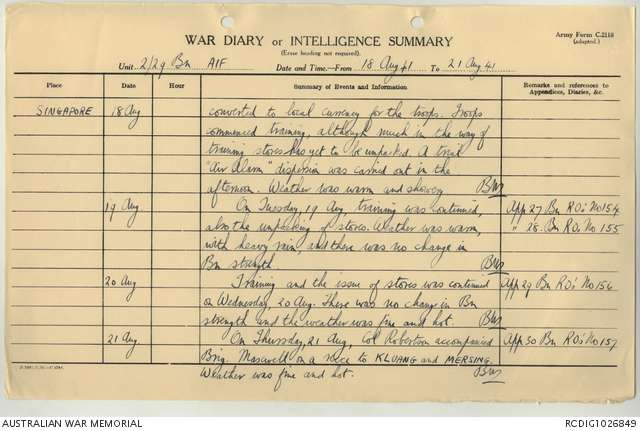 Army Form C.2118
(adapted.)
WAR DIARY or INTELLIGENCE SUMMARY
(Erase heading not required).
Unit 2/29 Bn AIF Date and Time—From 18 Aug 41 To 21 Aug 41
Place Date Hour Summary of Events and Information Remarks and references to Appendices, Diaries, &c.
SINGAPORE 18 Aug converted to local currency for the troops. Troops
commenced training, although much in the way of
training stores has yet to be unpacked. A trial
"Air Alarm" dispersion was carried out in the
afternoon. Weather was warm and showery
19 Aug On Tuesday, 19 Aug, training was continued, App 27 Bn RO's No 154
also the unpacking of stores. Weather was warm, " 28. Bn RO's No 155
with heavy rain, and there was no change in
Bn strength
20 Aug Training and the issue of stores was continued App 29 Bn RO's No 156
on Wednesday, 20 Aug. There was no change in Bn
strength and the weather was fine and hot.
21 Aug On Thursday, 21 Aug, Col Robertson accompanied App 30 Bn RO's No 157
Brig. Maxwell on a recce to KLUANG and MERSING.
Weather was fine and hot.
AUSTRALIAN WAR MEMORIAL
RCDIG1026849